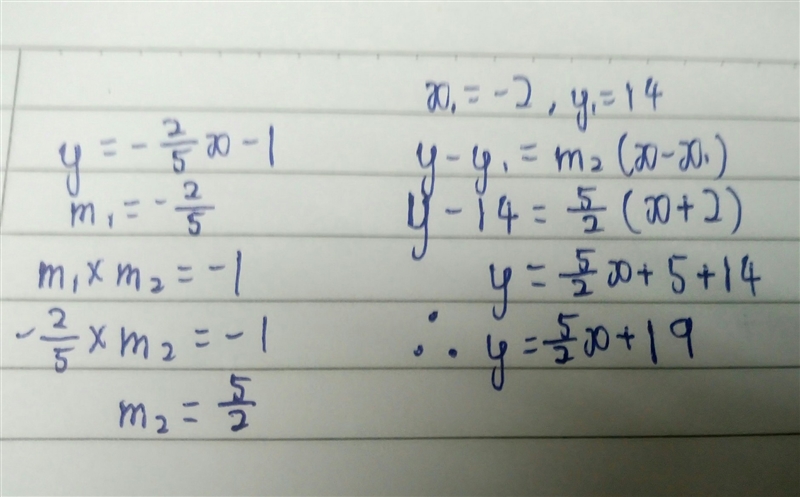 y = -2/5 x - 1
m₁ = -2/5
m₁ × m₂ = -1
-2/5 × m₂ = -1
m₂ = 5/2
x₁ = -2, y₁ = 14
y - y₁ = m₂ (x - x₁)
y - 14 = 5/2 (x + 2)
y = 5/2 x + 5 + 14
∴ y = 5/2 x + 19